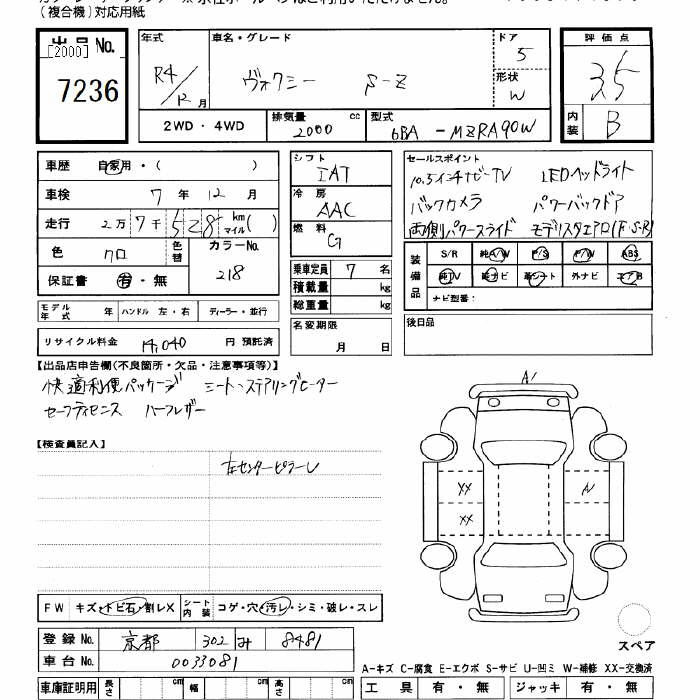 (複合機)対応用紙
出品No.
[2000]
7236
年式 車名・グレード ドア 評価点
R4/12月 ヴォクシー S-Z 5 3.5
形状 W
内装 B
2WD・4WD 排気量 2000 cc 型式 6BA-MZRA90W
車歴 自家用・( )
車検 7年 12月
走行 2万 7千 528 km マイル( )
色 クロ 色替 カラーNo. 218
保証書 有・無
シフト IAT
冷房 AAC
燃料 G
乗車定員 7名
積載量 kg
総重量 kg
セールスポイント
10.5インチナビ・TV LEDヘッドライト
バックカメラ パワーバックドア
両側パワースライド モデリスタエアロ(F・S・R)
装備品 S/R 純A/W P/S P/W ABS
純TV 純ナビ 革シート 外ナビ エアB
ナビ型番:
モデル年式 年 ハンドル 左・右 ディーラー・並行
名変期限 月 日
後日品
リサイクル料金 14,040 円 預託済
【出品店申告欄(不良箇所・欠品・注意事項等)】
快適利便パッケージ シート・ステアリングヒーター
セーフティセンス ハーフレザー
【検査員記入】
左センターピラーレ
A1
XX A1
XX
FW キズ・トビ石・割レX シート内装 コゲ・穴・汚レ・シミ・破レ・スレ
登録No. 京都 302 み 8481
車台No. 0033081
スペア
A-キズ C-腐食 E-エクボ S-サビ U-凹ミ W-補修 XX-交換済
車庫証明用 長さ cm 幅 cm 高さ cm 工具 有・無 ジャッキ 有・無